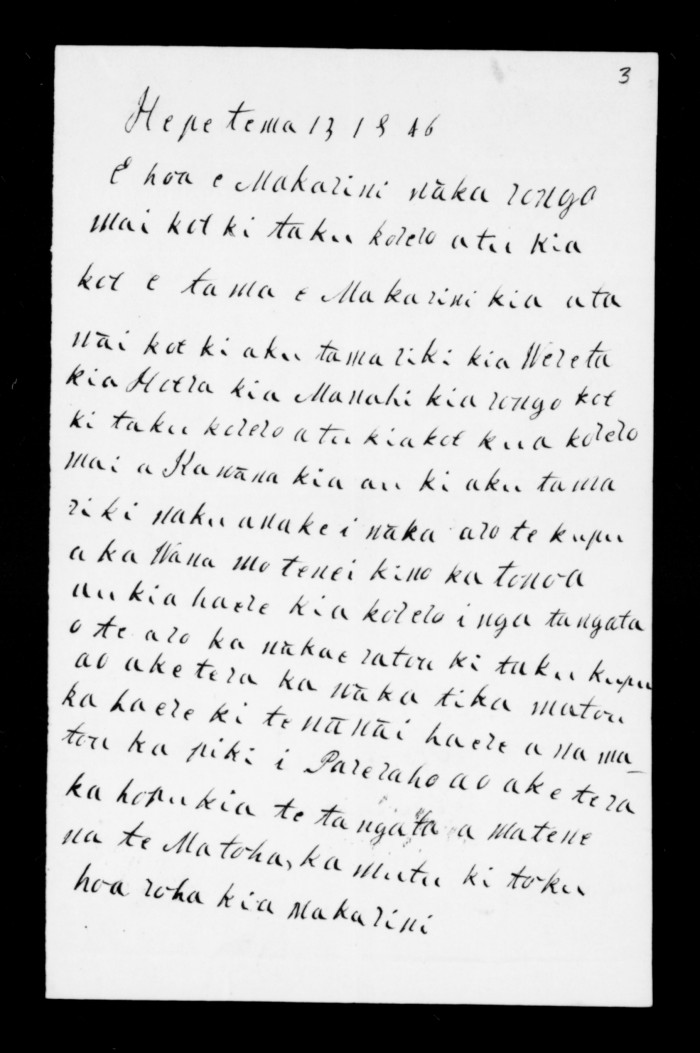 3
Hepetema 13 1846
E hoa e Makarini wāka rongo
mai koe ki taku korero atu kia
koe e tama e Makarini kia ata
wāi koe ki aku tamariki kia Wereta
kia Hoera kia Manahi kia rongo koe
ki taku korero atu kia koe kua korero
mai a Kawāna kia au ki aku tama
riki naku anake i wāka aro te kupu
a ka Wāna mo tenei kino ka tonoa
au kia haere kia korero i nga tangata
o te aro ka wākae ratou ki taku kupu
ao ake tera ka wāka tika matou
ka haere ki te wāwāi haere ana ma-
tou ka piki i Pareraho ao ake tera
ka hopukia te tangata a matene
na te Matoha, ka mutu ki toku
hoa roha kia Makarini